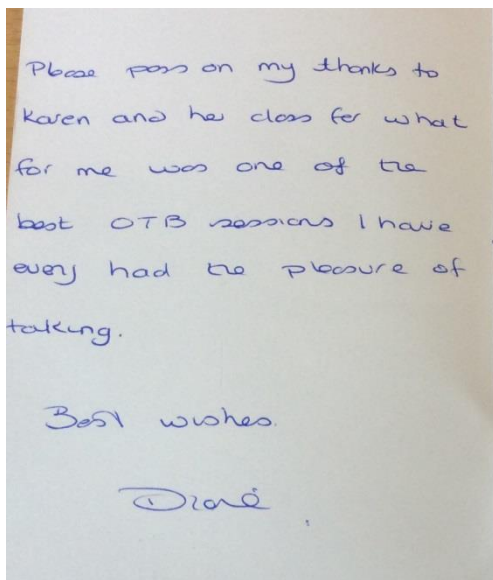 Please pass on my thanks to
Karen and her class for what
for me was one of the
best OTB sessions I have
every had the pleasure of
taking.
Best wishes.
Diane